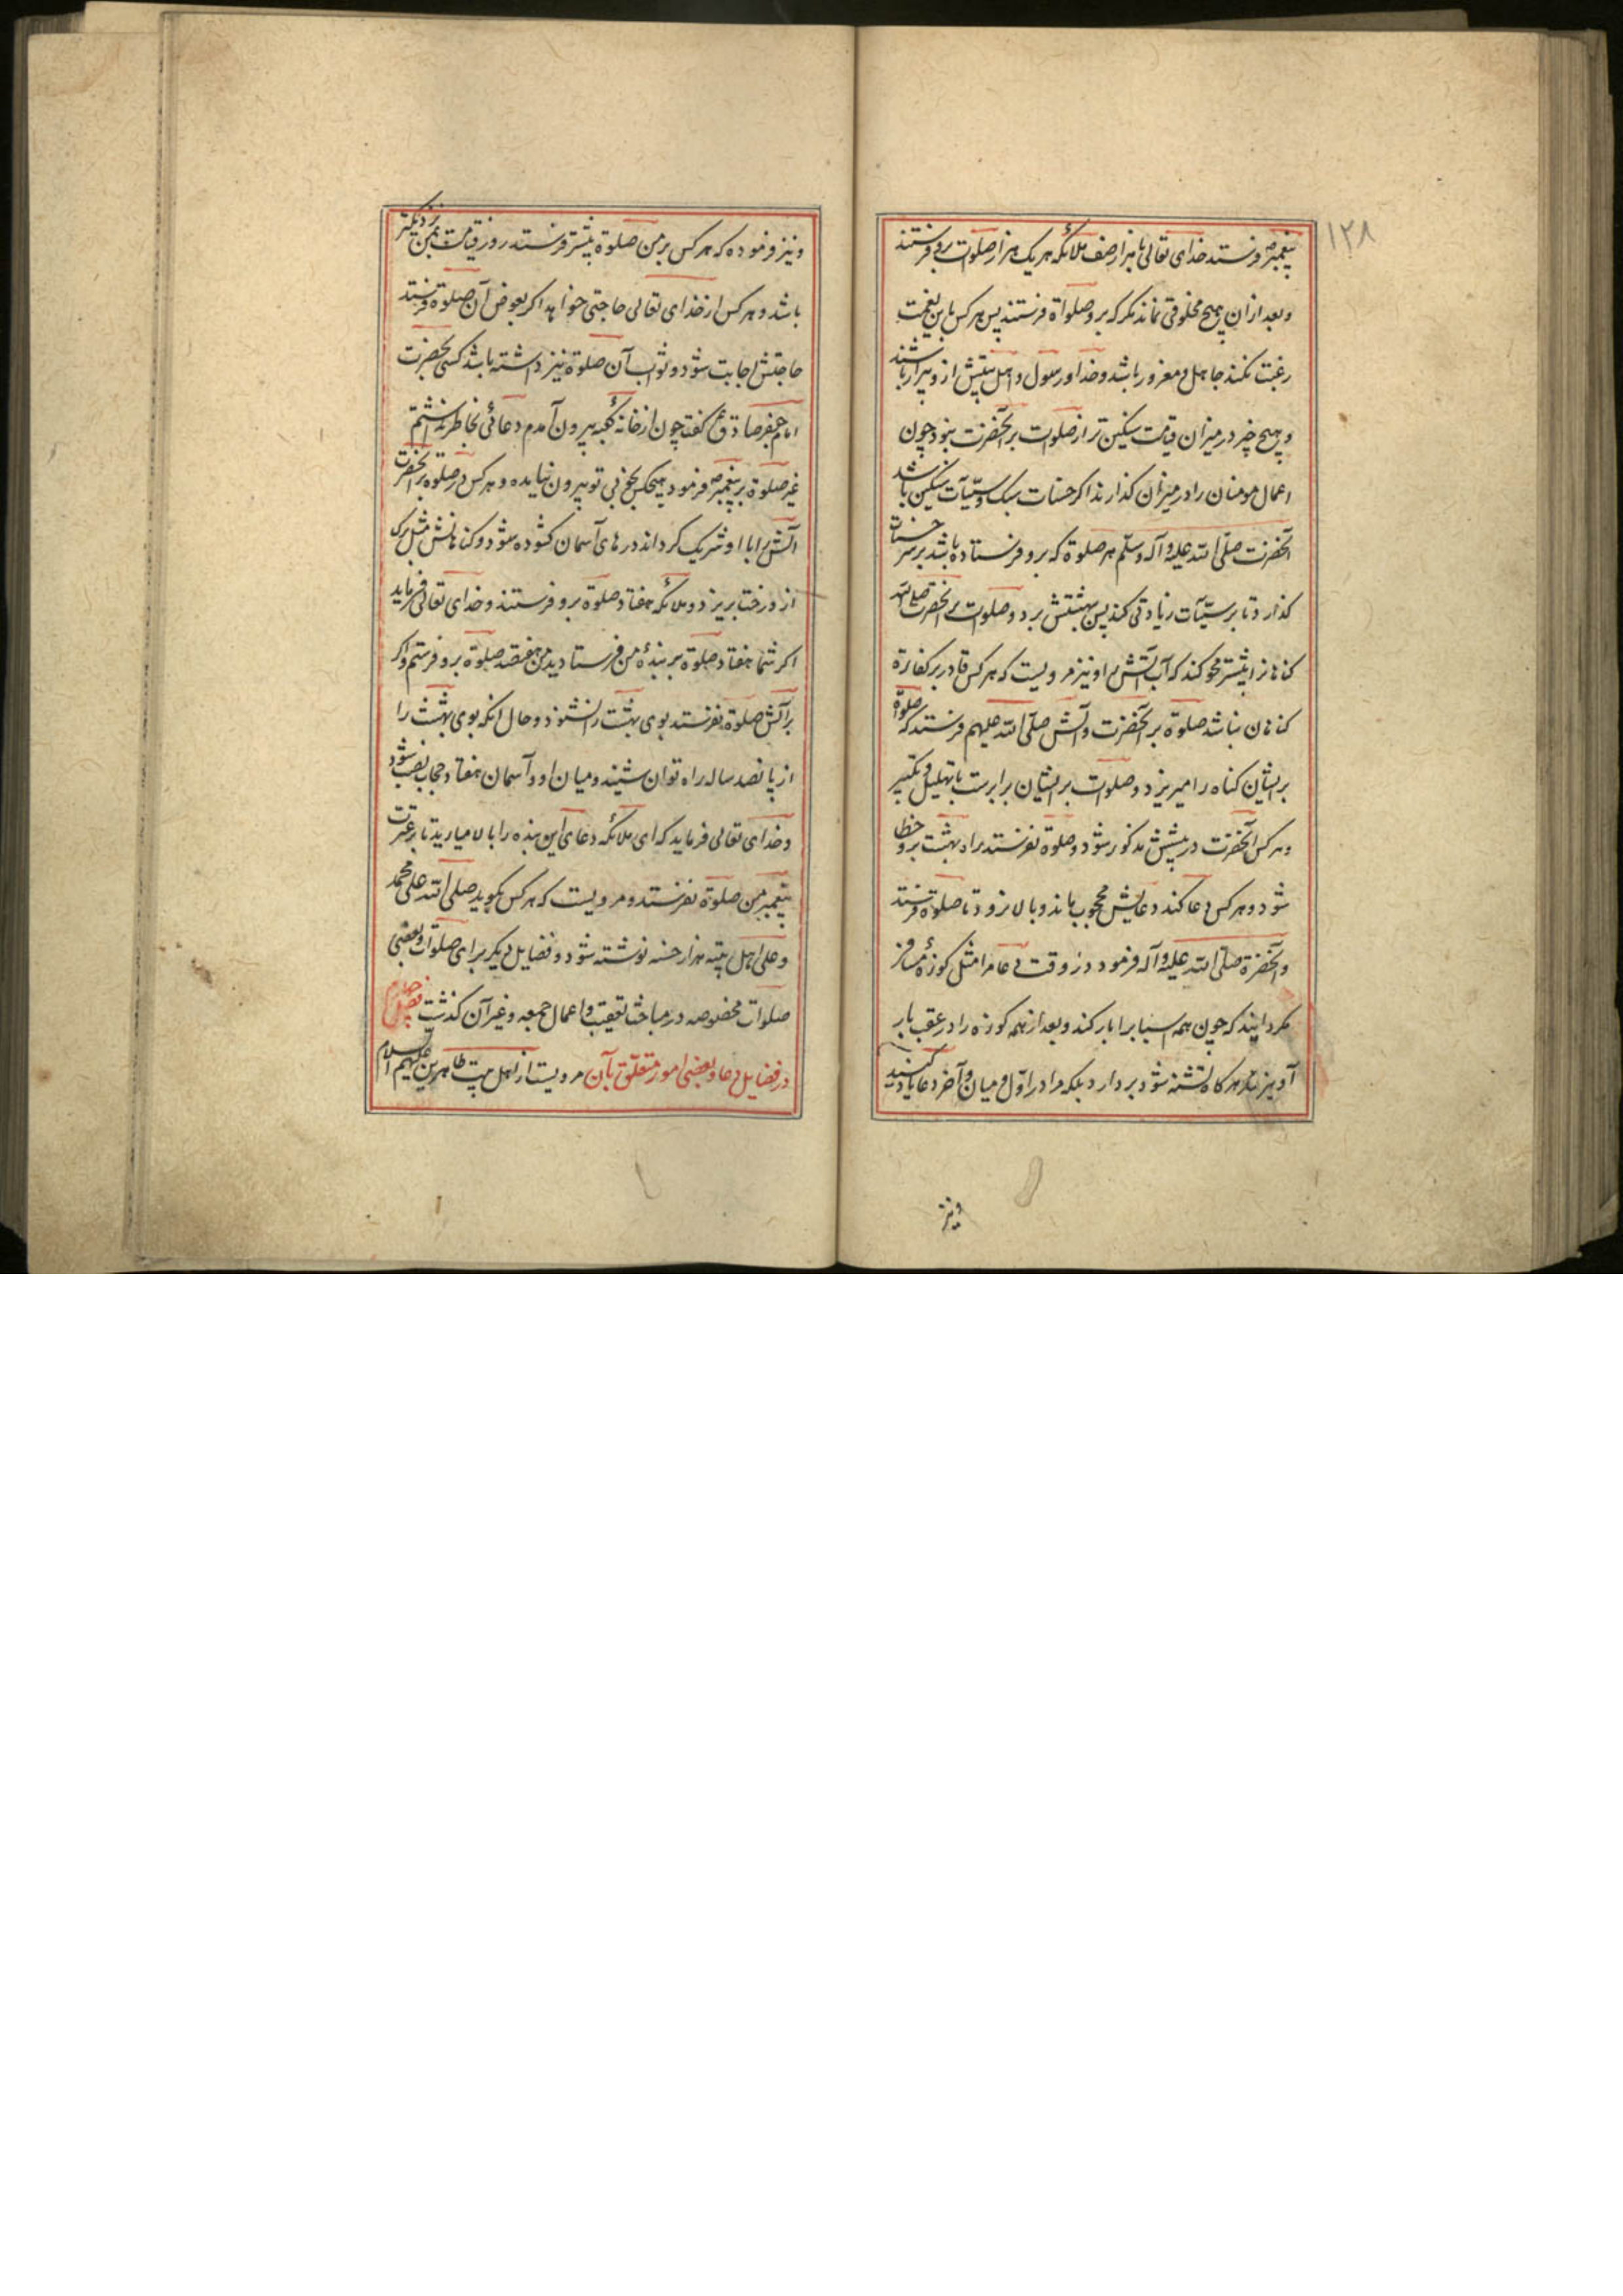 ۱۲۸
پیغمبر ص فرستد خدای تعالی با هزار صف ملائکه هر یک هزار صلوات برو فرستند
و بعد از ان هیچ مخلوقی نماند مکر که برو صلواة فرستند پس هر کس باین نعمت
رغبت نکند جاهل و مغرور باشد و خدا و رسول و اهل بیتش ازو بیزار باشند
و هیچ چیز در میزان قیامت سنکین تر از صلوات بر آنحضرت نبود چون
اعمال مومنان را در میزان کذارند اکر حسنات سبک و سیّآت سنکین باشد
آنحضرت صلّی الله علیه و آله و سلّم هر صلوة که برو فرستاده باشد بر سر حسنات
کذارد تا بر سیّآت زیادتی کند پس بهشتش برد و صلوات بر آنحضرت صلی الله
کناهانرا بیشتر محو کند که آب آتش را و نیز مرویست که هر کس قادر بر کفارة
کناهان نباشد صلوة بر آنحضرت و آلش صلّی الله علیهم فرستد که صلوة
بر ایشان کناه را میریزد و صلوات بر ایشان برابرست با تهلیل و تکبیر
و هر کس آنحضرت در پیشش مذکور شود و صلوة نفرستد براه بهشت برو خطا
شود و هر کس دعا کند دعایش محجوب ماند و بالا نرود تا صلوة فرستد
و آنحضرة صلّی الله علیه و آله فرمود در وقت دعا مرا مثل کوزهٔ مسافر
مکردانید که چون همه اسبابرا بار کند و بعد از همه کوزه را در عقب بار
آویزد تا هر کاه تشنه شود بردارد بلکه مرا در اوّل و میان و آخر دعا یاد کنید
و نیز
و نیز فرموده که هر کس بر من صلوة بیشتر فرستد روز قیامت بمن نزدیکتر
باشد و هر کس از خدای تعالی حاجتی خواهد اکر بعوض آن صلوة فرستد
حاجتش اجابت شود و ثواب آن صلوة نیز داشته باشد کسی بحضرت
امام جعفر صادق ع گفت چون از خانه کعبه بیرون آمدم دعائی بخاطر نداشتم
غیر صلوة بر پیغمبر ص فرمود هیچکس بخوبی تو بیرون نیامده و هر کس در صلوة بر آنحضرت
آلش را با او شریک کرداند درهای آسمان کشوده شود و کناهانش مثل برک
از درخت بریزد و ملائکه هفتاد صلوة برو فرستند و خدای تعالی فرماید
اکر شما هفتاد صلوة بر بندهٔ من فرستادید من هفتصد صلوة برو فرستم و اکر
بر آلش صلوة نفرستد بوی بهشت را نشنود و حال آنکه بوی بهشت را
از پانصد ساله راه توان شنید و میان او و آسمان هفتاد حجاب نصب شود
و خدای تعالی فرماید که ای ملائکه دعای این بنده را بالا میارید تا بر عترت
پیغمبر من صلوة نفرستد و مرویست که هر کس بکوید صلی الله علی محمد
و علی اهل بیته هزار حسنه نوشته شود و فضایل دیکر برای صلوات و بعضی
صلوات مخصوصه در مباحث تعقیب و اعمال جمعه و غیر آن کذشت فصل چهارم
در فضایل دعا و بعضی امور متعلّق بآن مرویست از اهل بیت طاهرین علیهم السلام